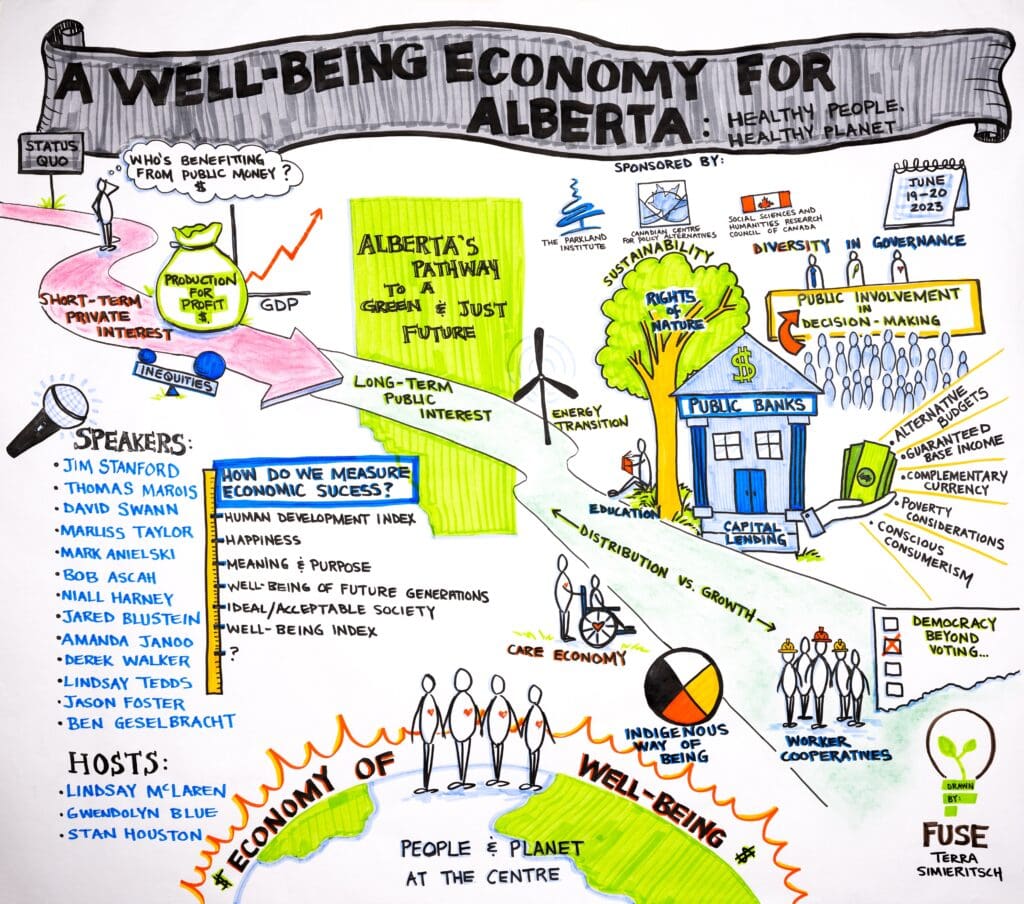 A WELL-BEING ECONOMY FOR
ALBERTA:
HEALTHY PEOPLE,
HEALTHY PLANET
STATUS
QUO
WHO'S BENEFITTING
FROM PUBLIC MONEY?
$
SPONSORED BY:
THE PARKLAND
INSTITUTE
CANADIAN CENTRE
FOR POLICY ALTERNATIVES
SOCIAL SCIENCES AND
HUMANITIES RESEARCH
COUNCIL OF CANADA
JUNE
19-20
2023
PRODUCTION
FOR
PROFIT
$
GDP
SHORT-TERM
PRIVATE
INTEREST
INEQUITIES
ALBERTA'S
PATHWAY
TO A
GREEN & JUST
FUTURE
LONG-TERM
PUBLIC
INTEREST
ENERGY
TRANSITION
SUSTAINABILITY
RIGHTS
of
NATURE
EDUCATION
DIVERSITY IN GOVERNANCE
PUBLIC INVOLVEMENT
IN
DECISION-MAKING
$
PUBLIC BANKS
CAPITAL
LENDING
• ALTERNATIVE
BUDGETS
• GUARANTEED
BASE INCOME
• COMPLEMENTARY
CURRENCY
• POVERTY
CONSIDERATIONS
• CONSCIOUS
CONSUMERISM
SPEAKERS:
• JIM STANFORD
• THOMAS MAROIS
• DAVID SWANN
• MARLISS TAYLOR
• MARK ANIELSKI
• BOB ASCAH
• NIALL HARNEY
• JARED BLUSTEIN
• AMANDA JANOO
• DEREK WALKER
• LINDSAY TEDDS
• JASON FOSTER
• BEN GESELBRACHT
HOSTS:
• LINDSAY McLAREN
• GWENDOLYN BLUE
• STAN HOUSTON
HOW DO WE MEASURE
ECONOMIC SUCESS?
HUMAN DEVELOPMENT INDEX
HAPPINESS
MEANING & PURPOSE
WELL-BEING OF FUTURE GENERATIONS
IDEAL/ACCEPTABLE SOCIETY
WELL-BEING INDEX
?
DISTRIBUTION VS. GROWTH
CARE ECONOMY
INDIGENOUS
WAY OF
BEING
WORKER
COOPERATIVES
DEMOCRACY
BEYOND
VOTING...
$ ECONOMY OF WELL-BEING $
PEOPLE & PLANET
AT THE CENTRE
DRAWN
BY:
FUSE
TERRA
SIMIERITSCH